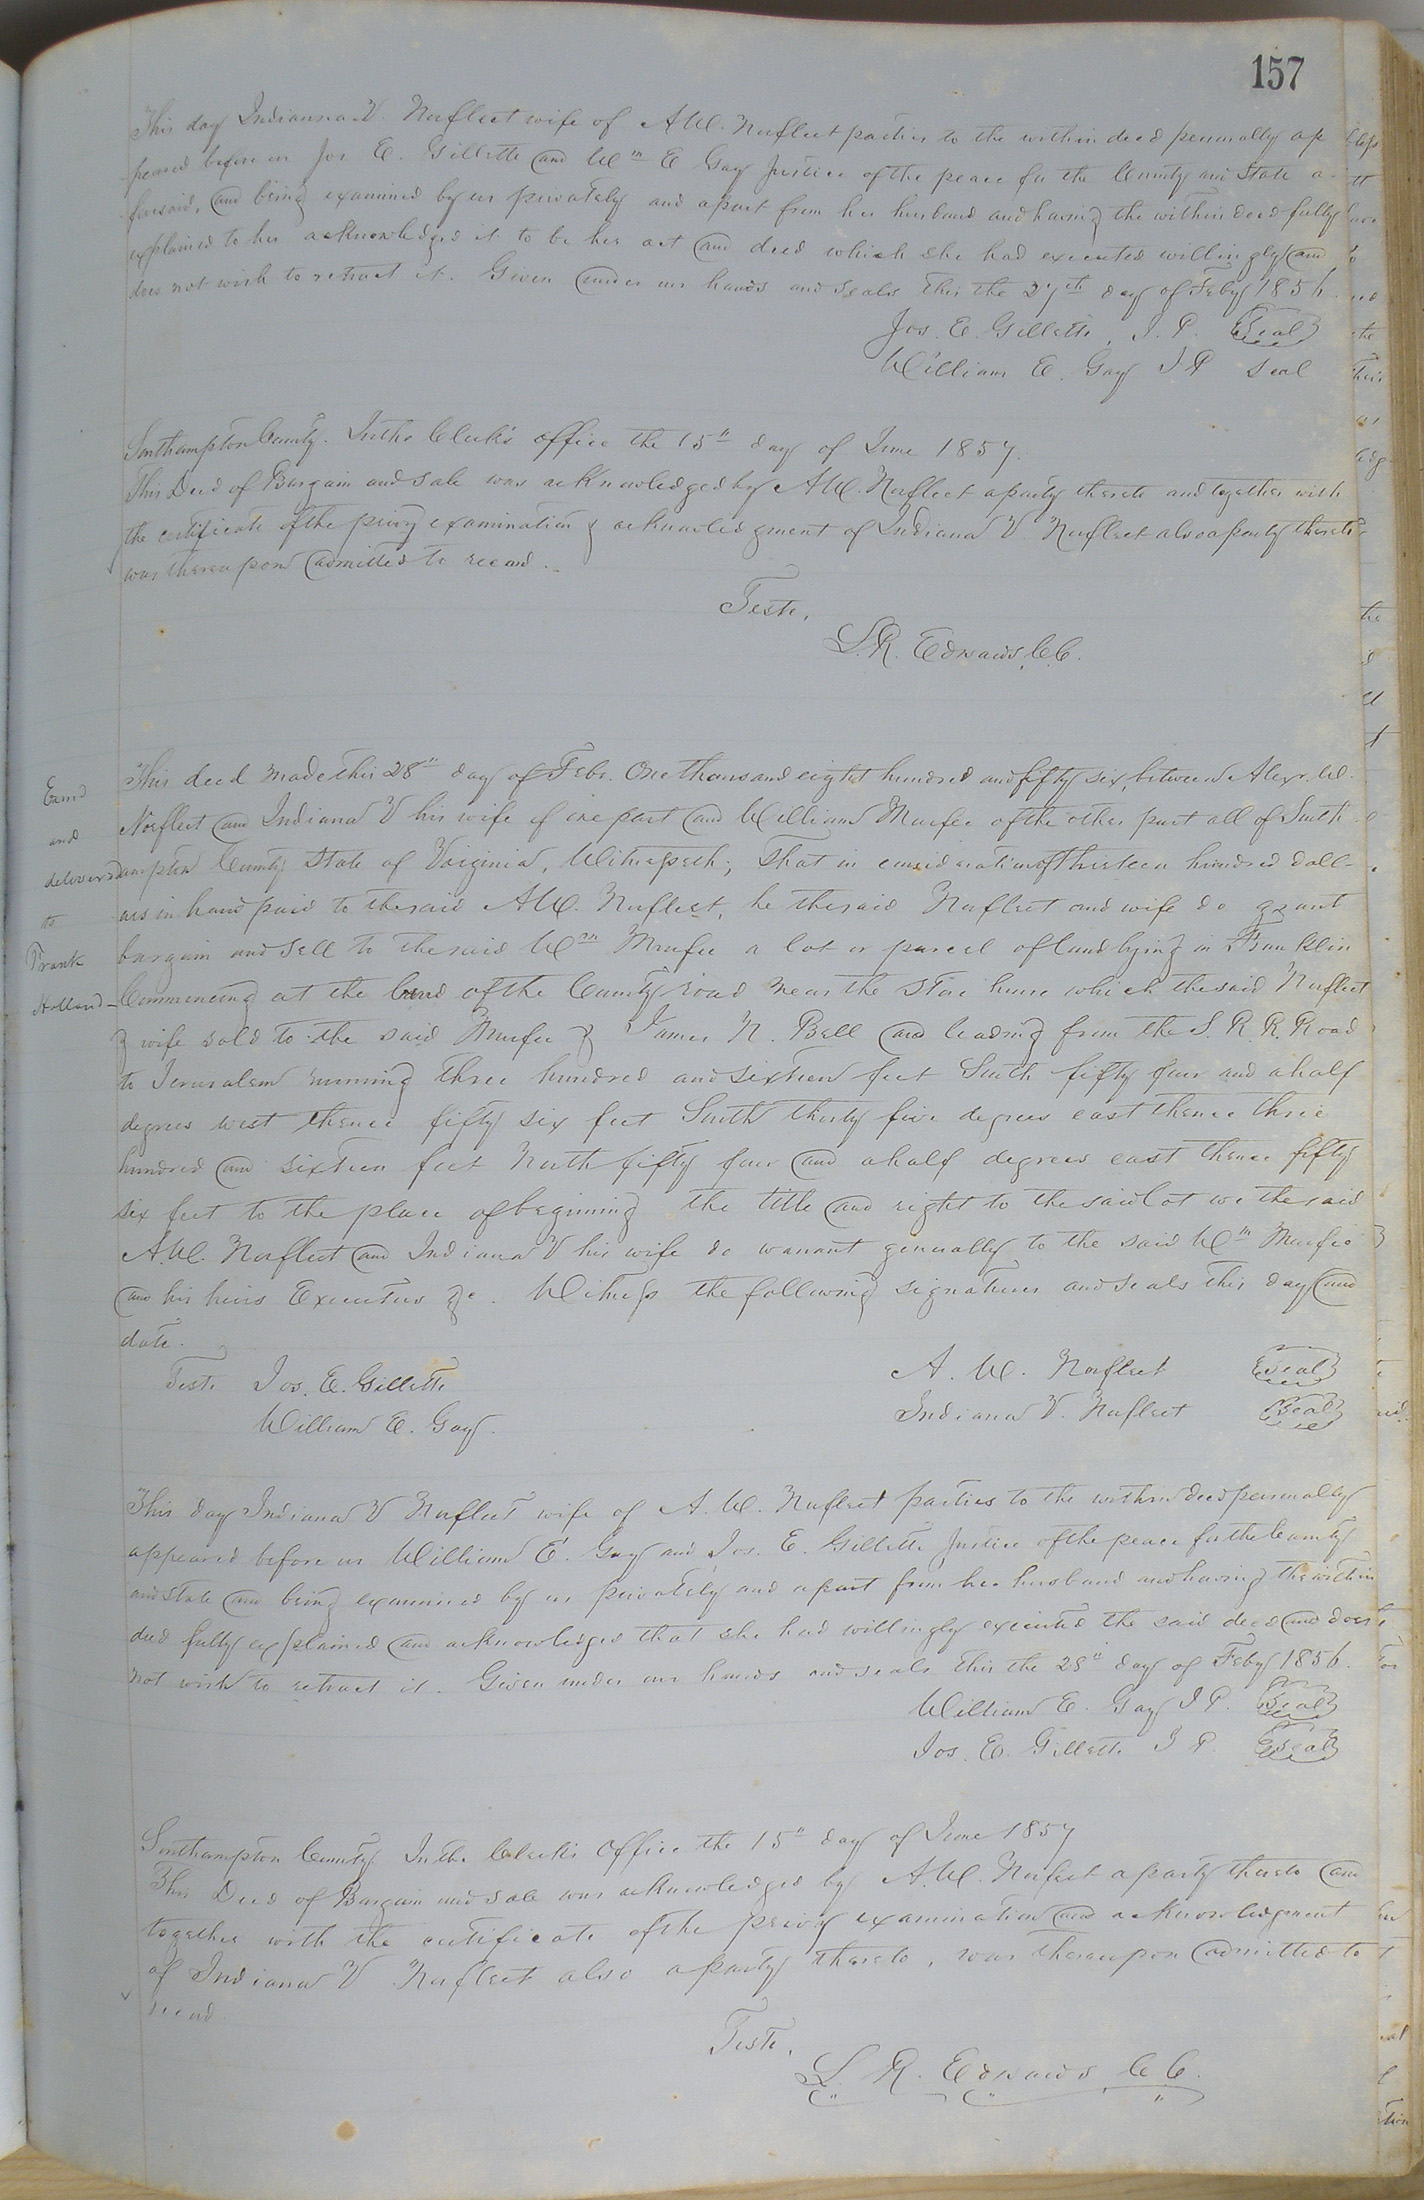 157
This day Indianna V. Norfleet wife of A W. Norfleet parties to the within deed personally ap
peared before us Jos E. Gillette and Wm E Gay Justice of the peace for the County and State a
foresaid, and being examined by us privately and apart from her husband and having the within deed fully
explained to her acknowledged it to be her act and deed which she had executed willingly and
does not wish to retract it. Given under our hands and seals this the 27th day of Feby 1856.
Jos. E. Gillette, J. P. Seal
William E. Gay J P Seal
Southampton County. In the Clerk's office the 15" day of June 1857.
This Deed of Bargain and Sale was acknowledged by A W. Norfleet a party thereto and together with
the certificate of the privy examination & acknowledgment of Indiana V. Norfleet also a party thereto,
was thereupon admitted to record.
Teste,
L. R. Edwards, C. C.
Examd
and
deliverd
to
Frank
Holland
This deed made this 28" day of Feby. One thousand eight hundred and fifty six, between Alexr. W.
Norfleet and Indiana V his wife of one part and William Murfee of the other part all of South
ampton County State of Virginia, Witnesseth; That in consideration of Thirteen hundred doll-
ars in hand paid to the said A W. Norfleet, he the said Norfleet and wife do grant
bargain and sell to the said Wm Murfee a lot or parcel of land lying in Franklin
Commencing at the bend of the County road near the store house which the said Norfleet
& wife sold to the said Murfee & James N. Bell and leading from the S. R. R. Road
to Jerusalem running three hundred and sixteen feet South fifty four and a half
degrees west thence fifty six feet South thirty five degrees east thence three
hundred and sixteen feet North fifty four and a half degrees east thence fifty
six feet to the place of beginning the title and right to the said lot we the said
A. W. Norfleet and Indiana V his wife do warrant generally to the said Wm Murfee
and his heirs Executors &c. Witness the following signatures and seals this day and
date.
Teste Jos. E. Gillette A. W. Norfleet Seal
William E. Gay. Indiana V. Norfleet Seal
This day Indiana V Norfleet wife of A. W. Norfleet parties to the within deed personally
appeared before us William E. Gay and Jos. E. Gillette Justice of the peace for the County
and State and being examined by us privately and apart from her husband and having the within
deed fully explained and acknowledges that she had willingly executed the said deed and does
not wish to retract it. Given under our hands and seals this the 28" day of Feby 1856.
William E. Gay J P. Seal
Jos. E. Gillette J P. Seal
Southampton County In the Clerks Office the 15" day of June 1857
This Deed of Bargain and Sale was acknowledged by A. W. Norfleet a party thereto and
together with the certificate of the privy examination and acknowledgment
of Indiana V Norfleet also a party thereto, was thereupon admitted to
record.
Teste,
L. R. Edwards C C.